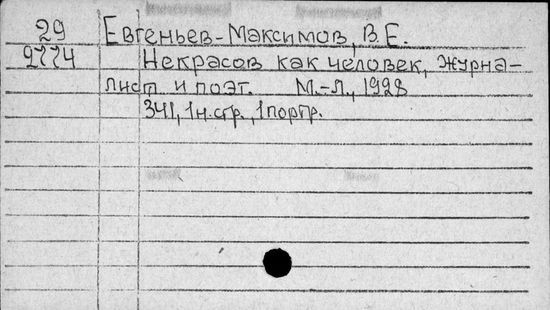 29 Евгеньев-Максимов, В.Е.
9774 Некрасов как человек, журна-
лист и поэт. М.-Л., 1928
341, 1 н.стр., 1 портр.